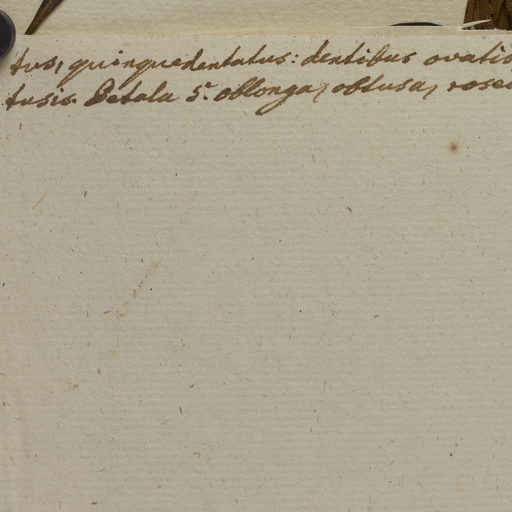 tus, quinquedentatus: dentibus ovatis
tusis. Petala 5. oblonga, obtusa, rose